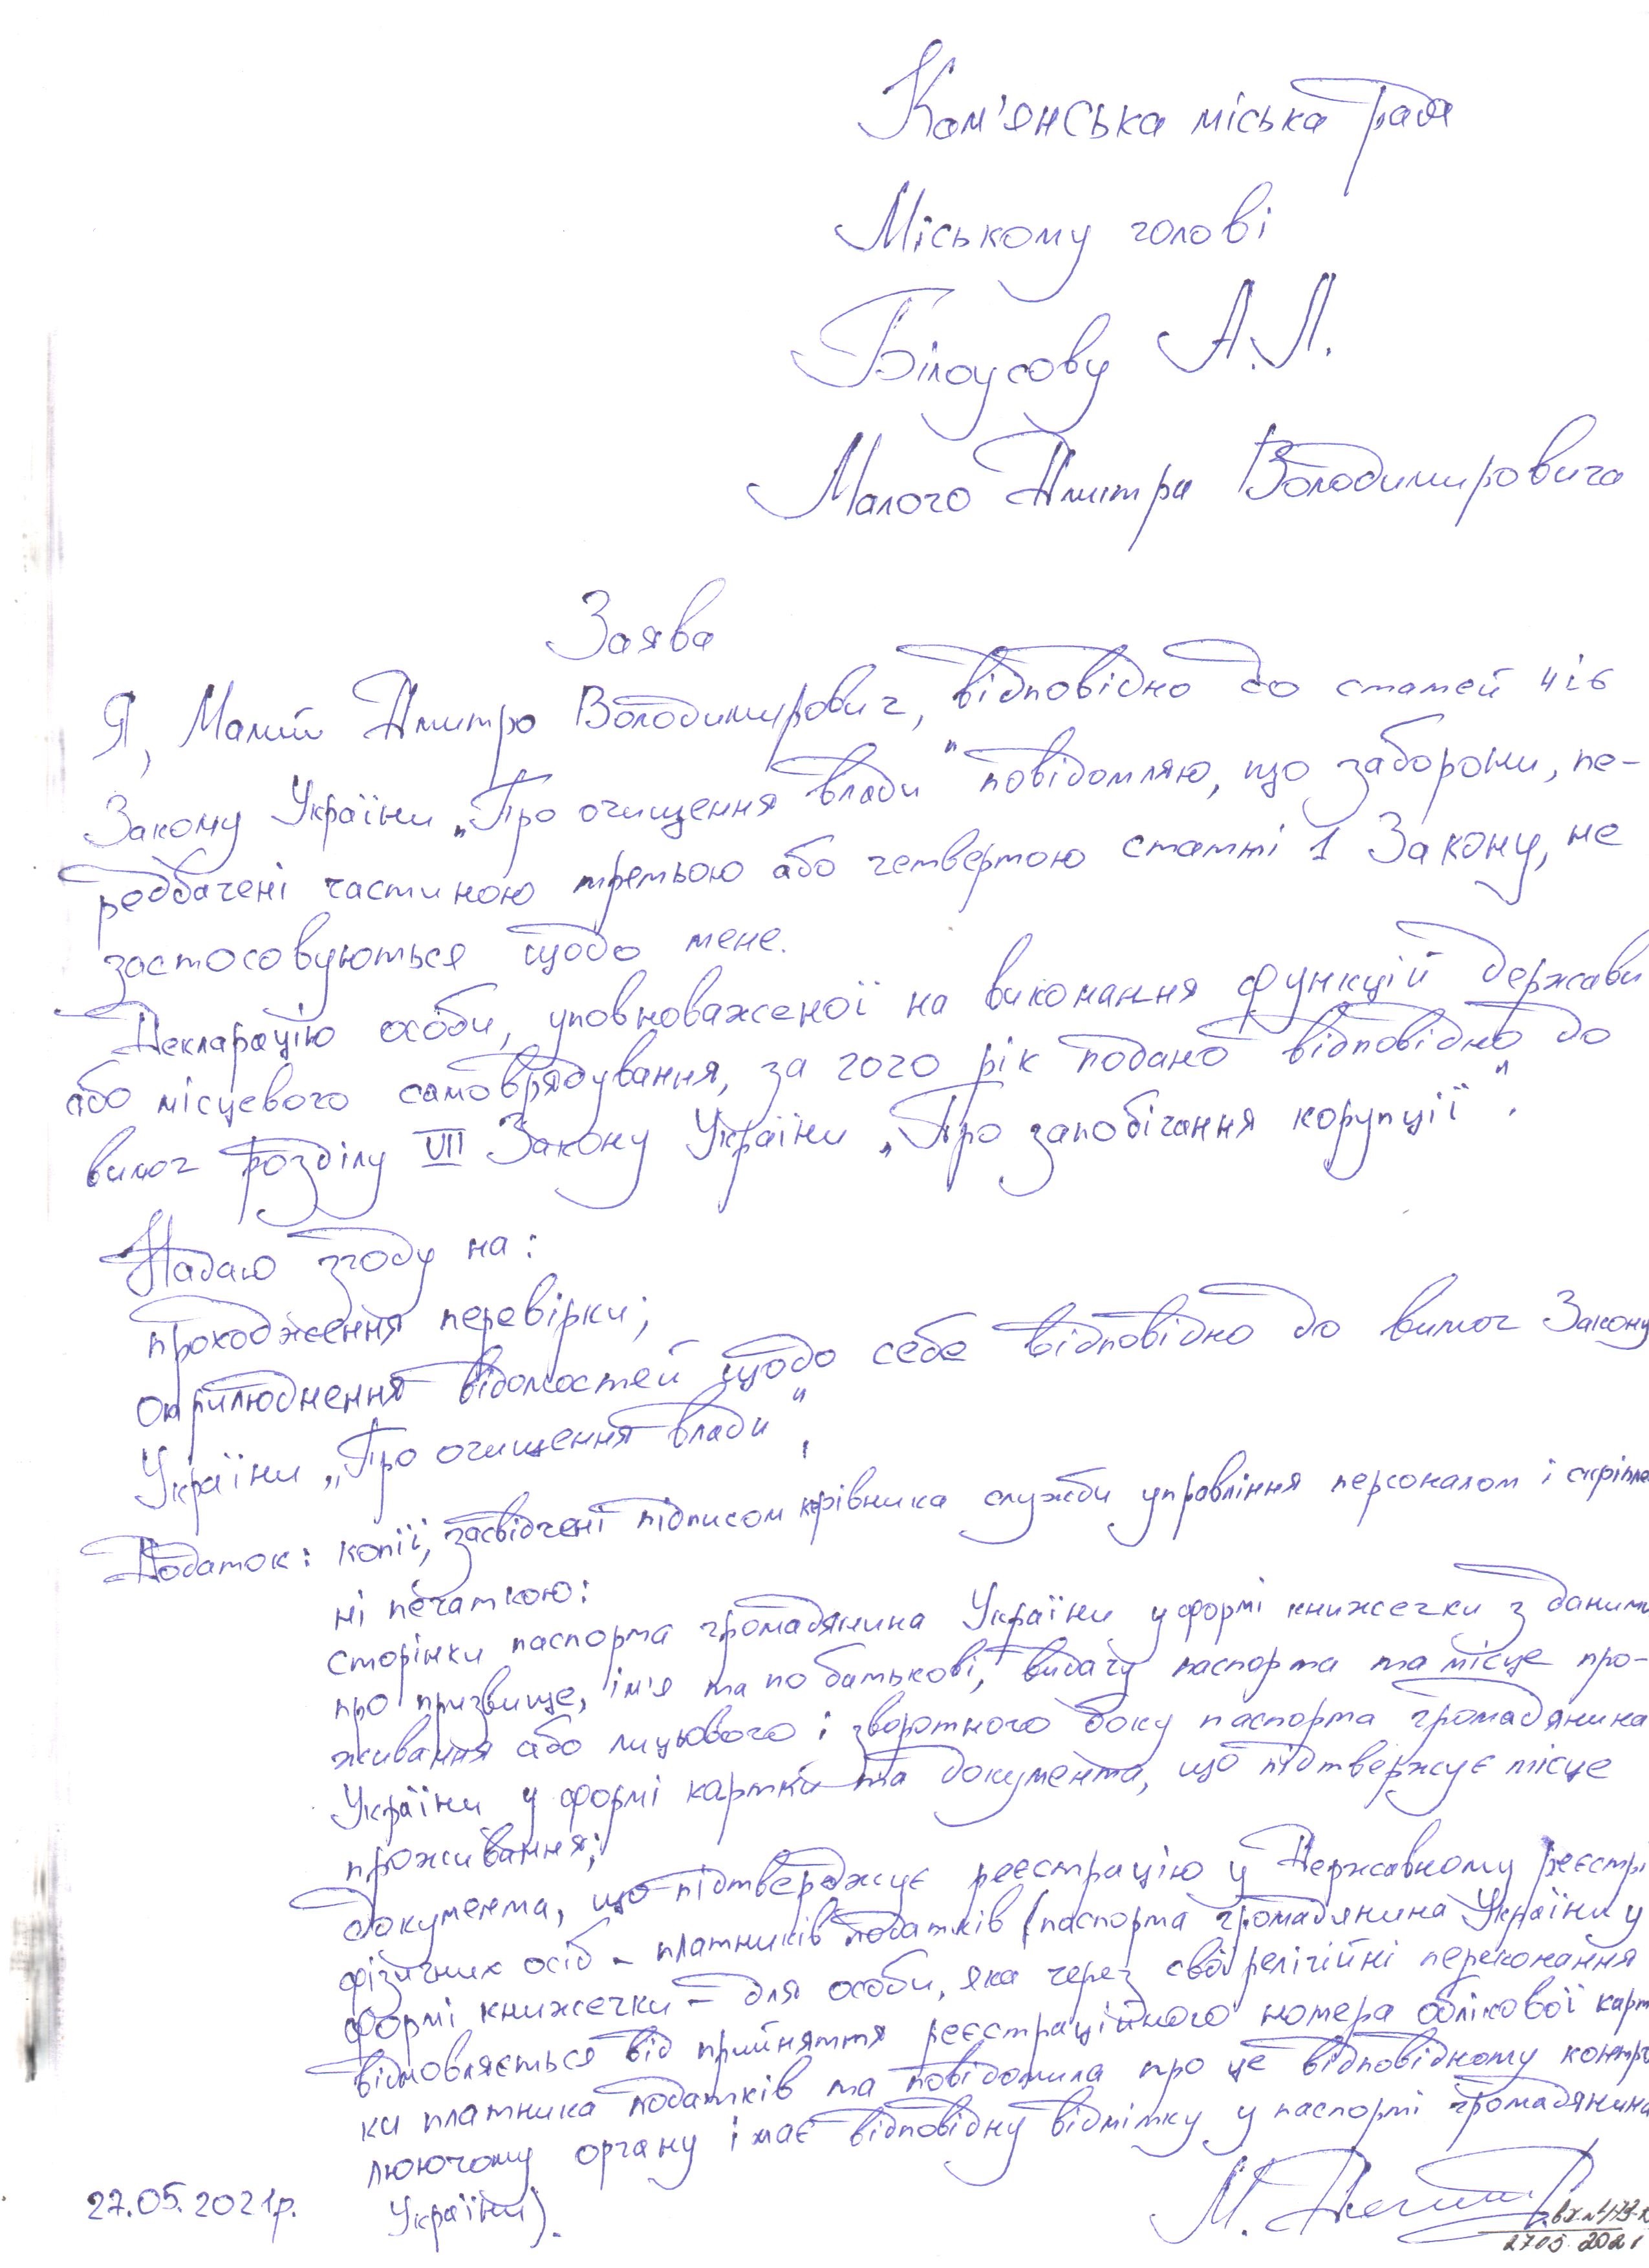 Кам'янська міська рада
Міському голові
Білоусову А.Л.
Малого Дмитра Володимировича
Заява
Я, Малий Дмитро Володимирович, відповідно до статей 4 і 6
Закону України „Про очищення влади" повідомляю, що заборони, пе-
редбачені частиною третьою або четвертою статті 1 Закону, не
застосовуються щодо мене.
Декларацію особи, уповноваженої на виконання функцій держави
або місцевого самоврядування, за 2020 рік подано відповідно до
вимог розділу VII Закону України „Про запобігання корупції".
Надаю згоду на:
проходження перевірки;
оприлюднення відомостей щодо себе відповідно до вимог Закону
України „Про очищення влади".
Додаток: копії, засвідчені підписом керівника служби управління персоналом і скріпле
ні печаткою:
сторінки паспорта громадянина України у формі книжечки з даними
про прізвище, ім'я та по батькові, видачу паспорта та місце про-
живання або лицьового і зворотного боку паспорта громадянина
України у формі картки та документа, що підтвержує місце
проживання;
документа, що підтверджує реєстрацію у Державному реєстрі
фізичних осіб - платників податків (паспорта громадянина України у
формі книжечки - для особи, яка через свої релігійні переконання
відмовляється від прийняття реєстраційного номера облікової карт
ки платника податків та повідомила про це відповідному контро
люючому органу і має відповідну відмітку у паспорті громадянина
України).
27.05.2021р.
27.05.2021